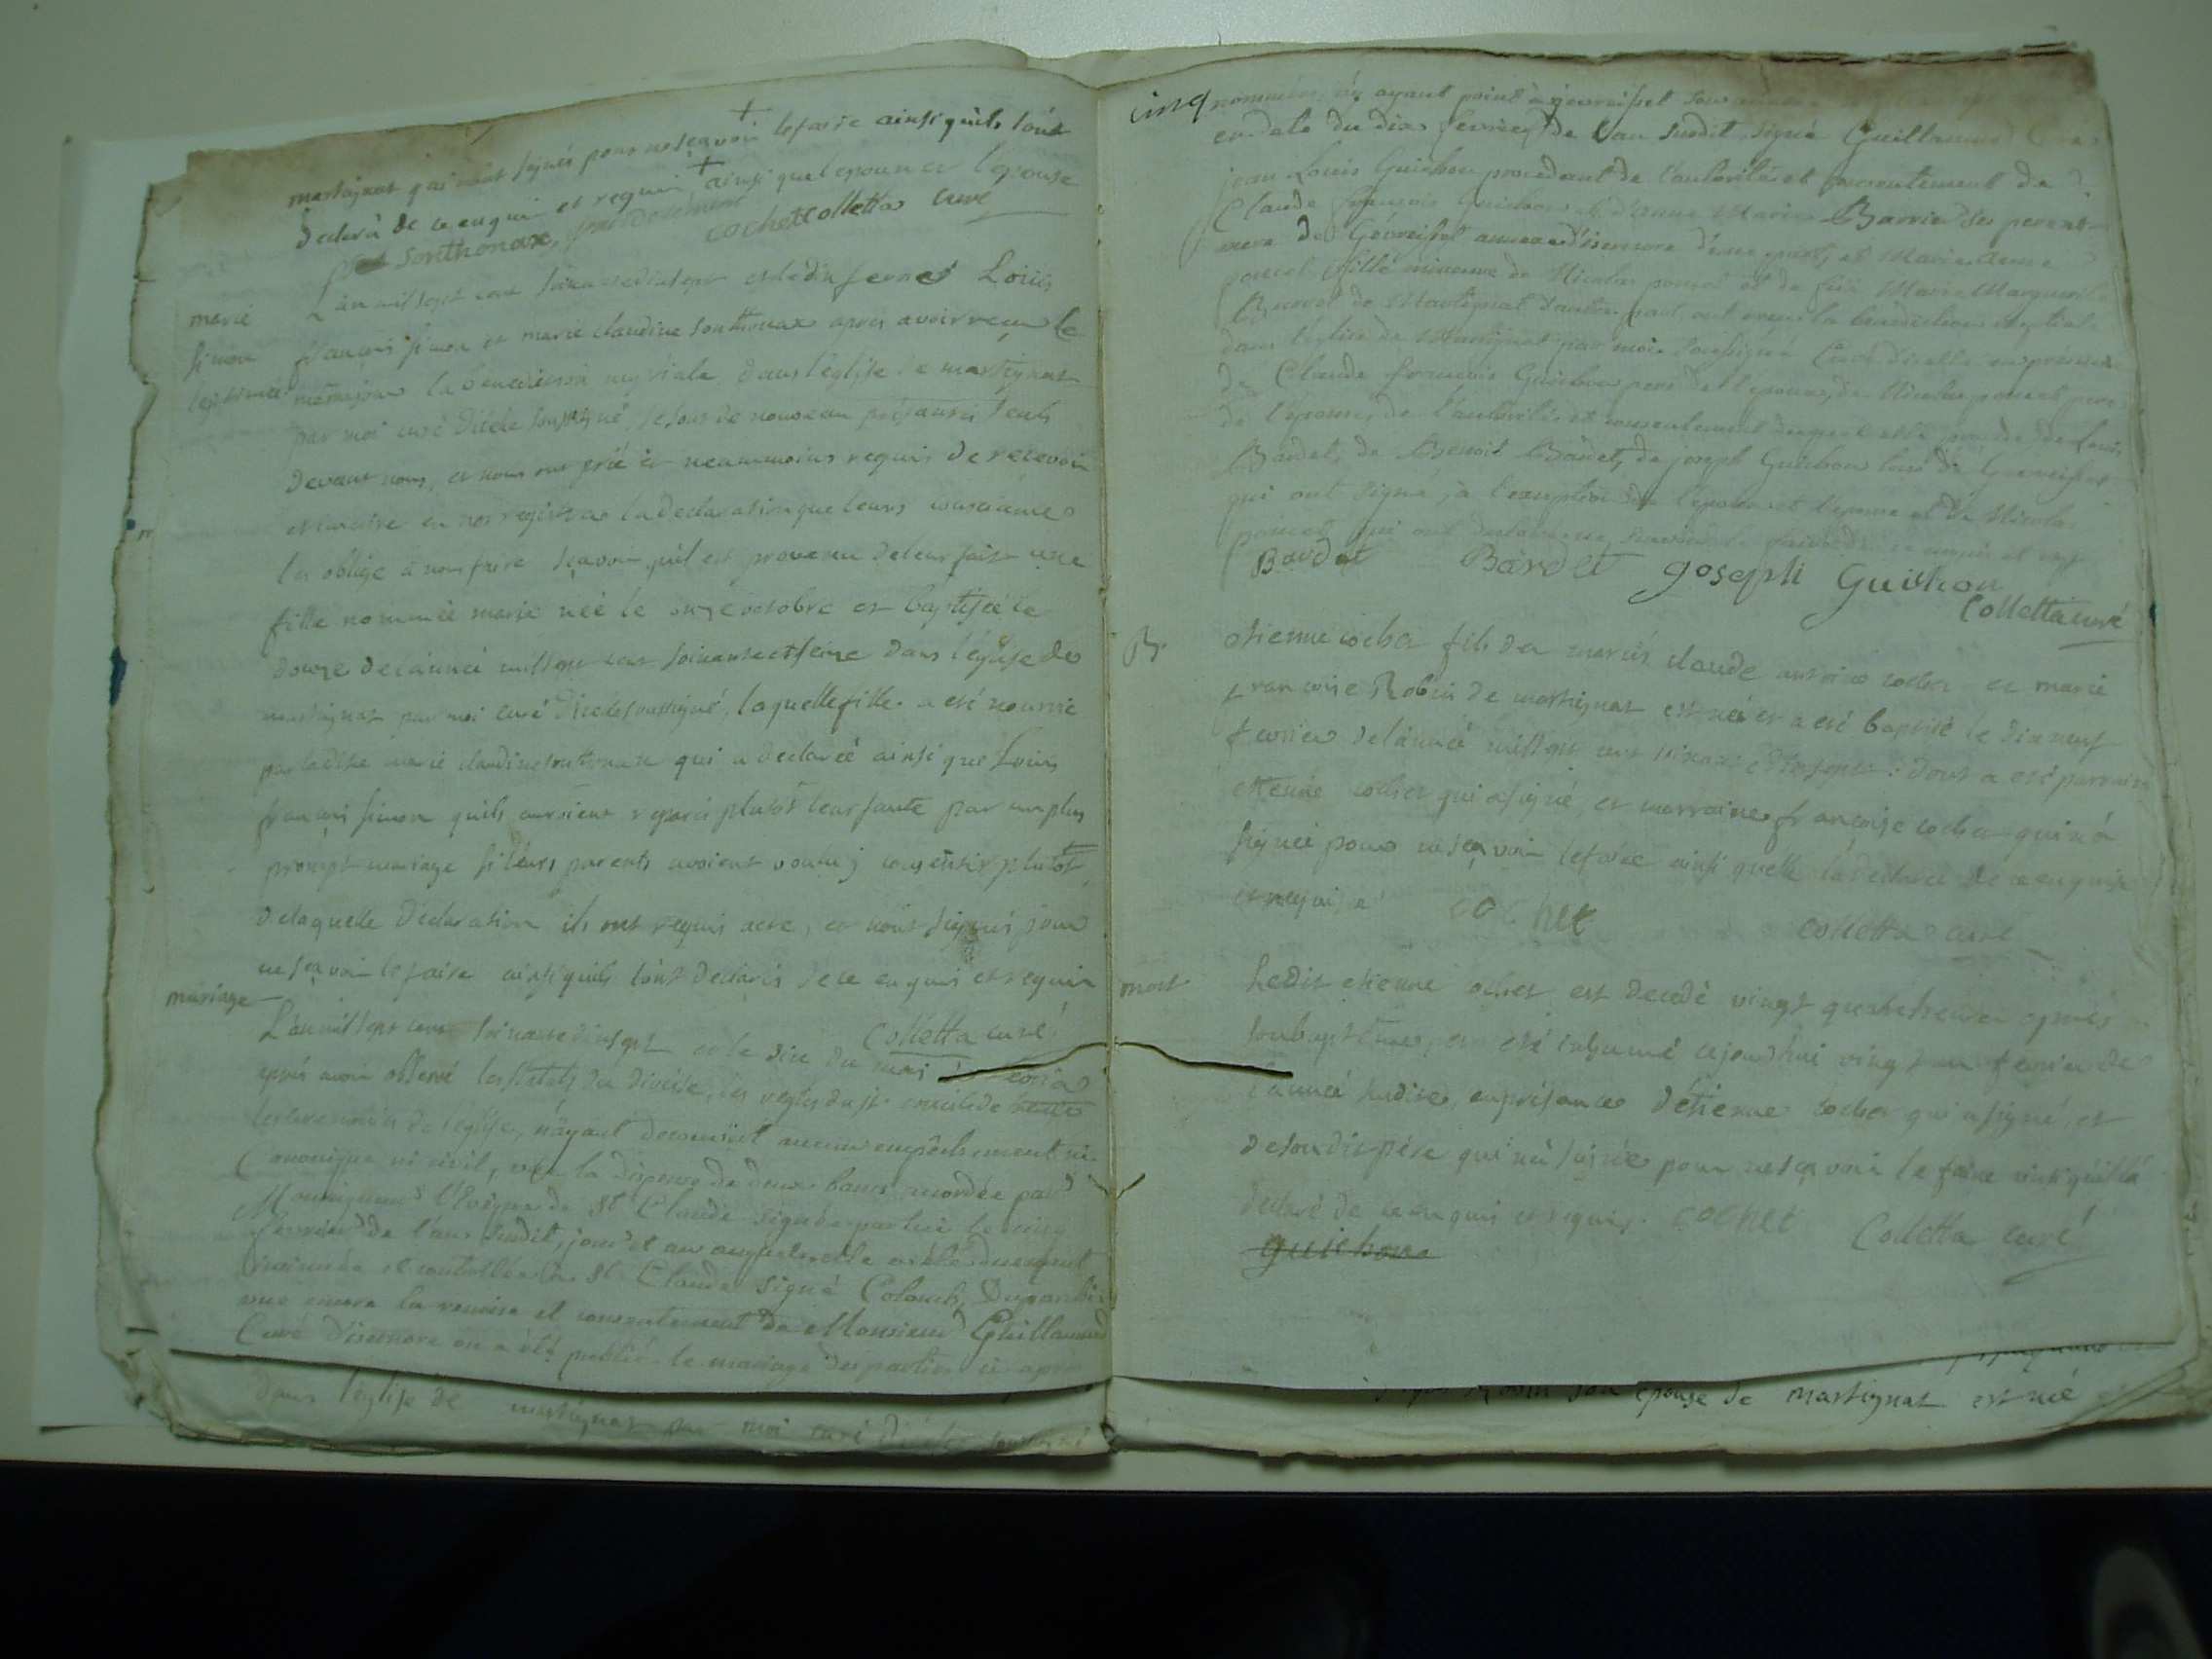 martignat qui n'ont signés pour ne sçavoir le faire ainsi quils l'ont
declaré de ce enquis et requis, ainsi que l'epoux et l'epouse
Sonthonax, cochet colletta curé
marie
simon
legitimée
L'an mil sept cent soixante dix sept et le dix fevrier Louis
françois simon et marie claudine sonthonax apres avoir reçu le
meme jour la benediction nuptiale dans l'église de martignat
par moi curé dicelle soussigné, se sont de nouveau présentés seuls
devant nous, et nous ont prié et neanmoins requis de recevoir
et inscrire en nos registres la declaration que leurs consciences
les oblige à nous faire sçavoir quil est provenu de leur fait une
fille nommée marie née le onze octobre et baptisée le
douze de l'année mil sept cent soixante et seize dans l'église de
martignat par moi curé dicelle soussigné, laquelle fille a été nourrie
par ladite marie claudine sonthonax qui a declaré ainsi que Louis
françois simon quils auroient reparé plutôt leur faute par un plus
prompt mariage si leurs parents avoient voulu y consentir plutôt
de laquelle declaration ils ont requis acte, et n'ont signés pour
ne sçavoir le faire ainsi quils l'ont declarés de ce enquis et requis
Colletta curé
mariage
L'an mil sept cent soixante dix sept et le dix du mois de fevrier
après avoir observé les statuts du diocèse, les regles du st concile de trente
les ceremonies de l'église, n'ayant decouvert aucun empêchement ni
canonique ni civil, vu la dispense de deux bancs accordée par
Monseigneur l'Evêque de St Claude signée par lui le cinq
fevrier de l'an susdit, jour et an auquel elle a été duement
insinuée et controllée à St Claude signé Colomb,
vue encore la remise et consentement de Monsieur Guillaumod
Curé d'isernore ou a été publié le mariage des parties ci après
dans l'église de martignat par moi curé dicelle soussigné
cinq
nommées, n'y ayant point à gevreisset
en date du dix fevrier de l'an susdit, signé Guillaumod Curé
jean Louis Guichon procedant de l'autorité et consentement de
Claude françois Guichon et d'anne Marie Barrio ses pere et
mere de Gévreisset annexe d'isernore d'une part, et Marie anne
poncet fille mineure de Nicolas poncet et de feüe Marie Marguerite
de Martignat d'autre part, ont reçu la benediction nuptiale
dans l'église de Martignat par moi soussigné Curé d'icelle en presence
de Claude françois Guichon pere de l'epoux, de Nicolas poncet pere
de l'epouse, de l'autorité et consentement duquel elle procede de Louis
Bardet, de Benoit Bardet, de joseph Guichon tous de Gevreisset
qui ont signé, à l'exception de l'epoux et l'epouse et de Nicolas
poncet qui ont
Bardet Bardet joseph Guichon
Colletta curé
B.
etienne cochet fils des mariés claude antoine cochet et marie
françoise Robin de martignat est né et a été baptisé le dix neuf
fevrier de l'année mil sept cent soixante et dix sept: dont a été parrain
etienne cochet qui a signé, et marraine françoise cochet qui n'a
signée pour ne sçavoir le faire ainsi quelle la declaré de ce enquise
et requise cochet colletta curé
mort
Ledit etienne cochet est decedé vingt quatre heures apres
son baptême, et été inhumé ce jourdhui vingt un fevrier de
l'année susdite, en présence d'étienne cochet qui a signé, et
de son dit pére qui n'a signé pour ne sçavoir le faire ainsi quil l'a
declaré de ce enquis et requis. cochet Colletta curé
guichon
Robin son épouse de martignat est né